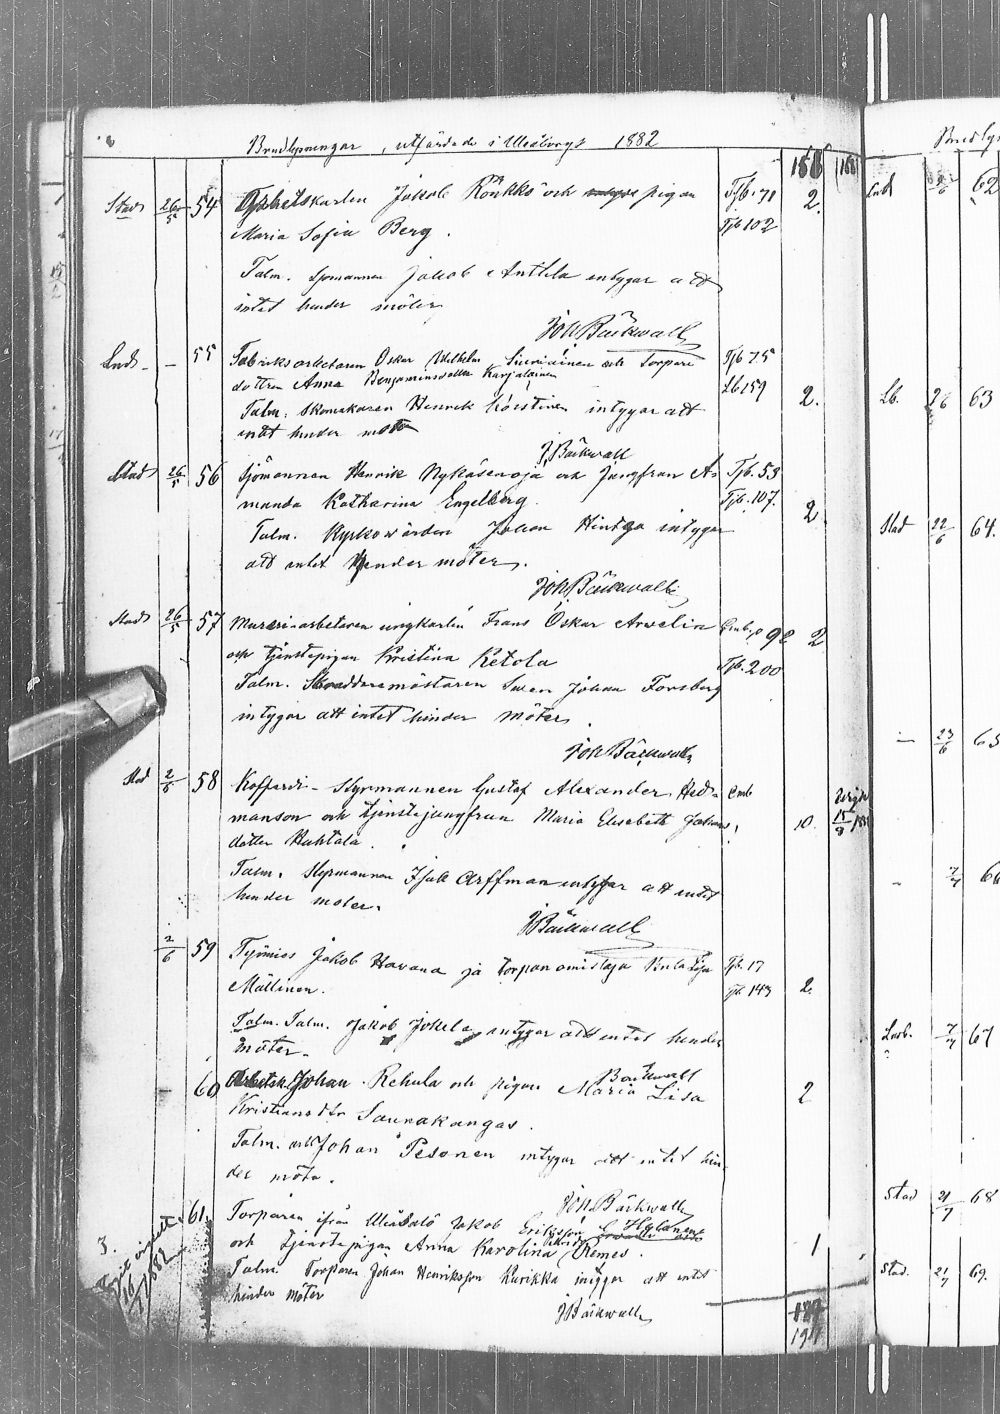 Brudlysningar, utfärdade i Uleåborgs 1882
156
Stad 26/5 54 Arbetskarlen Jakob Rönkkö och pigan Tjb. 71 2.
Maria Sofia Berg. Tjb 102
Talm. Sjömannen Jakob Anttila intygar att
intet hinder möter
Joh Bäckwall
Land - 55 Fabriksarbetaren Oskar Wilhelm och Torpare Tjb 75
dottren Anna Benjaminsdotter Karjalainen Lb 159 2.
Talm. Skomakaren Henrik intygar att
intet hinder möter
J Bäckwall
Stad 26/5 56 Sjömannen Henrik Nykäsenoja och Jungfrun A- Tjb. 53
manda Katharina Engelberg. Tjb. 107. 2
Talm. Kyrkowärden Johan Hintsa intygar
att intet hinder möter.
Joh Bäckwall
Stad 26/5 57 Mureriarbetaren ungkarlen Frans Oskar Arvelin 92 2
och tjenstepigan Kristina Ketola Tjb. 200
Talm. Skräddaremästaren Swen Johan Forsberg
intygar att intet hinder möter.
Joh Bäckwall
Stad 2/6 58 Kofferdi-Styrmannen Gustaf Alexander Hed-
manson och tjenstejungfrun Maria Elisabeth Johans 10. 15/9
dotter Huhtala.
Talm. Styrmannen Isak Arffman intygar att intet
hinder möter.
J Bäckwall
2/6 59 Työmies Jakob Havana ja torpan omistaja Liisa Tjb. 17
Mällinen. Tjb. 143 2.
Talm. Talm. Jakob Jokela intygar att intet hinder
möter.
Bäckwall
- 60 Arbetsk. Johan Rehula och pigan Maria Lisa 2
Kristiansdtr Saurakangas.
Talm. arb Johan Pesonen intygar att intet hin-
der möta.
Joh Bäckwall
61. Torparen ifrån Uleåsalo Jakob Eriksson
och tjenstepigan Anna Karolina Remes. 1
Talm. Torparen Johan Henriksson Kurikka intygar att intet
hinder möter
J Bäckwall
3.
1882
Land 62
Lb. 26 63
Stad 22/6 64.
- 23/6 65
7/7 66
7/7 67
Stad 21/7 68
Stad. 21/7 69.